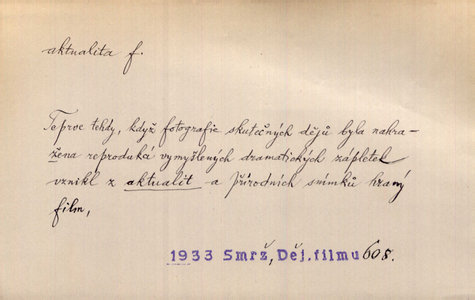 aktualita f.
Teprve tehdy, když fotografie skutečných dějů byla nahra-
žena reprodukcí vymyšlených dramatických zápletek
vznikl z aktualit a přírodních snímků hraný
film,
1933 Smrž, Děj. filmu 608.